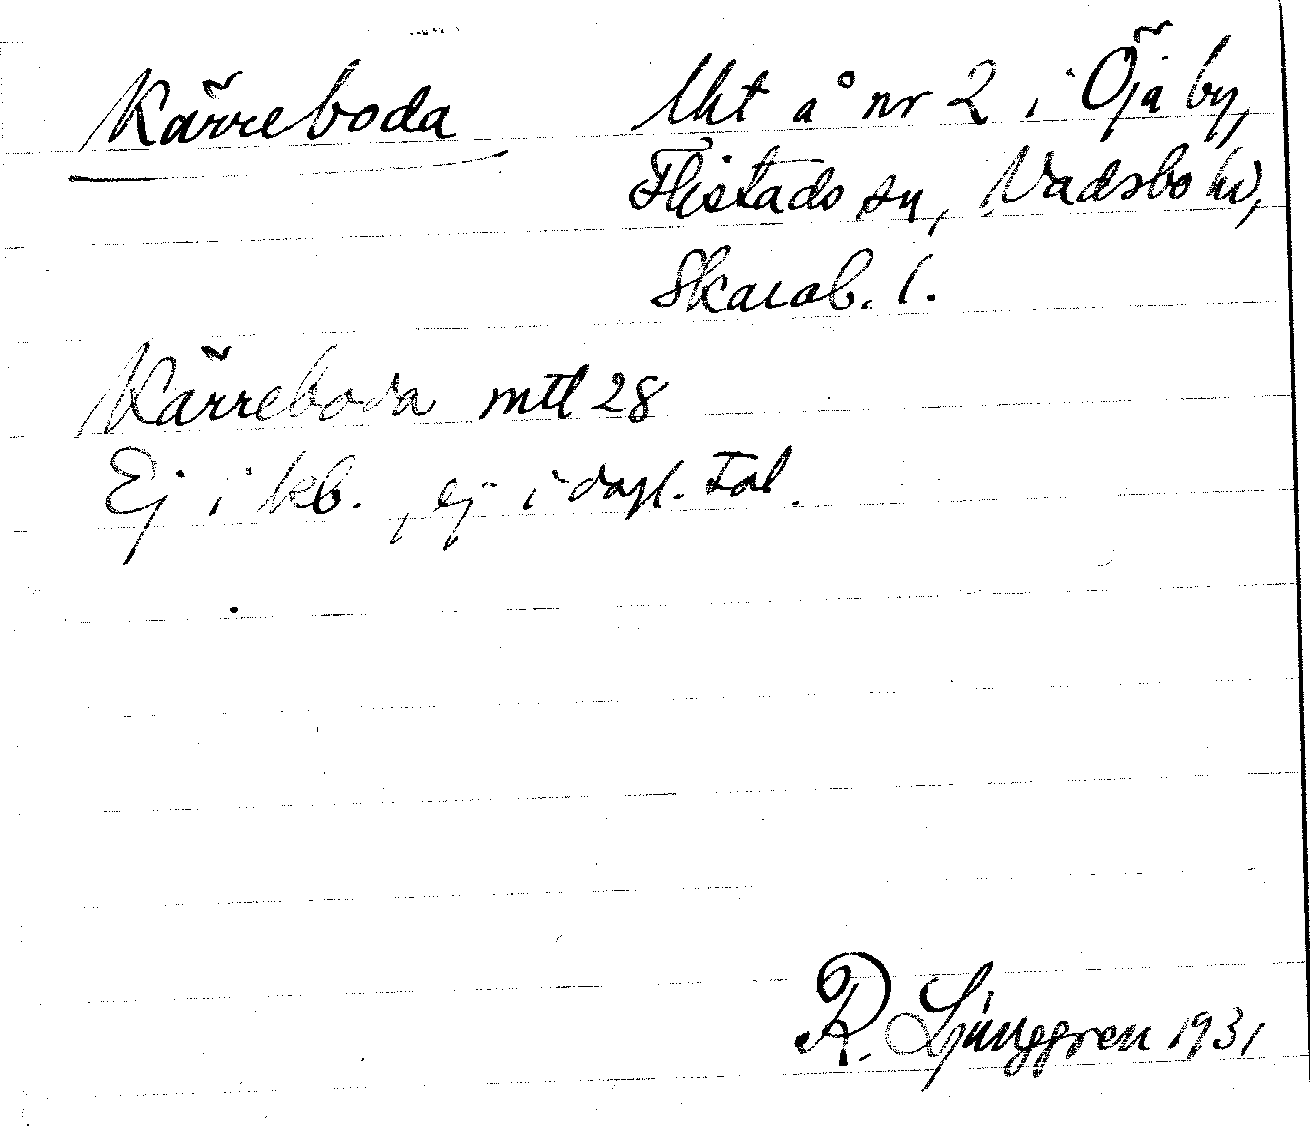 Kärreboda
Lht å nr 2 i Öja by,
Flistads sn, Vadsbo hd,
Skarab. l.
Kärreboda mtl 28
Ej i kb., ej i dagl. tal.
R. Ljunggren 1931